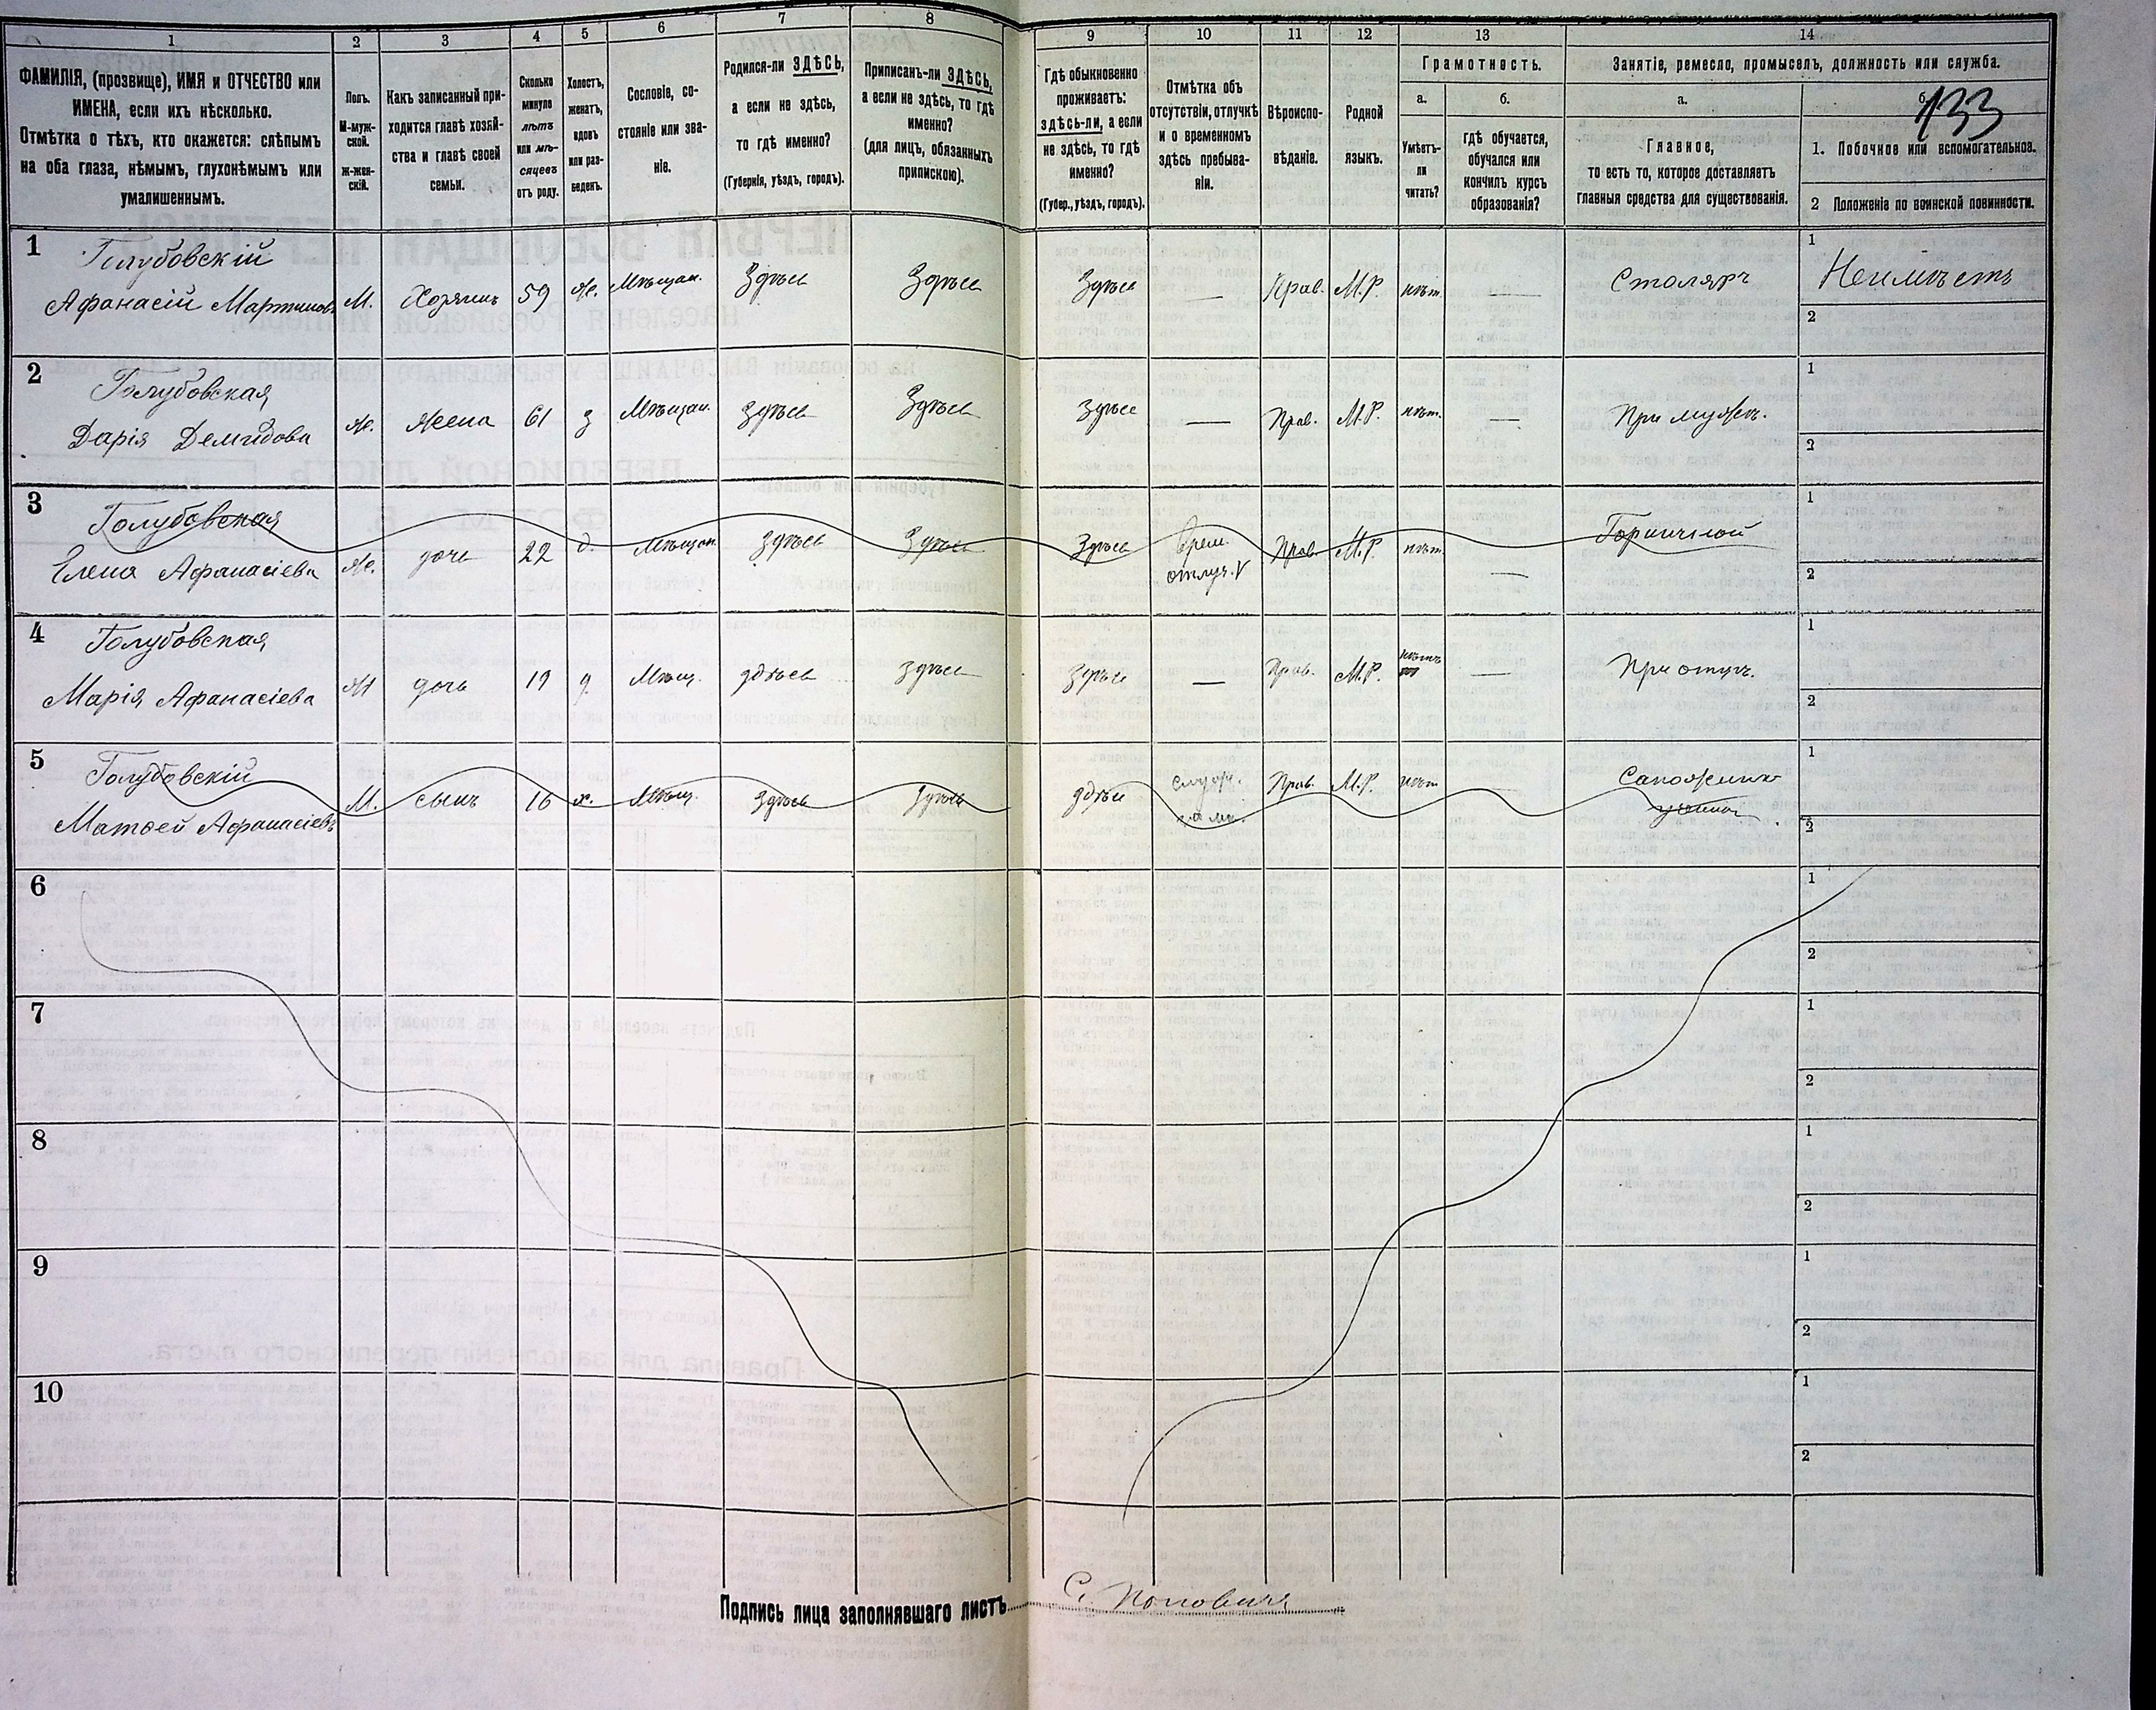 1
2
3
4
5
6
7
8
9
10
11
12
13
14
ФАМИЛІЯ, (прозвище), ИМЯ и ОТЧЕСТВО или
ИМЕНА, если ихъ нѣсколько.
Отмѣтка о тѣхъ, кто окажется: слѣпымъ
на оба глаза, нѣмымъ, глухонѣмымъ или
умалишеннымъ.
Полъ.
М-муж-
ской.
ж-жен-
скій.
Какъ записанный при-
ходится главѣ хозяй-
ства и главѣ своей
семьи.
Сколько
минуло
лѣтъ
или мѣ-
сяцевъ
отъ роду.
Холостъ,
женатъ,
вдовъ
или раз-
веденъ.
Сословіе, со-
стояніе или зва-
ніе.
Родился-ли ЗДѢСЬ,
а если не здѣсь,
то гдѣ именно?
(Губернія, уѣздъ, городъ).
Приписанъ-ли ЗДѢСЬ,
а если не здѣсь, то гдѣ
именно?
(для лицъ, обязанныхъ
припискою).
Гдѣ обыкновенно
проживаетъ:
здѣсь-ли, а если
не здѣсь, то гдѣ
именно?
(Губер., уѣздъ, городъ).
Отмѣтка объ
отсутствіи, отлучкѣ
и о временномъ
здѣсь пребыва-
ніи.
Вѣроиспо-
вѣданіе.
Родной
языкъ.
Грамотность.
а.
Умѣетъ-
ли
читать?
б.
гдѣ обучается,
обучался или
кончилъ курсъ
образованія?
Занятіе, ремесло, промыселъ, должность или служба.
а.
Главное,
то есть то, которое доставляетъ
главныя средства для существованія.
б.
133
1. Побочное или вспомогательное.
2 Положеніе по воинской повинности.
1
Голубовскій
Афанасій Мартиновъ
М.
Хозяинъ
59
ж.
Мѣщан.
Здѣсь
Здѣсь
Здѣсь
—
Прав.
М.Р.
нѣт.
—
Столяръ
1
Неимѣетъ
2
2
Голубовская
Дарія Демидова
ж.
жена
61
з
Мѣщан.
Здѣсь
Здѣсь
Здѣсь
—
Прав.
М.Р.
нѣт.
—
При мужѣ.
1
2
3
Голубовская
Елена Афанасіева
ж.
дочь
22
д.
Мѣщан.
Здѣсь
Здѣсь
Здѣсь
врем.
отлуч. V
Прав.
М.Р.
нѣт.
—
Горничной
1
2
4
Голубовская
Марія Афанасіева
дочь
19
д.
Мѣщ.
здѣсь
здѣсь
Здѣсь
—
Прав.
М.Р.
нѣтъ
—
При отцѣ.
1
2
5
Голубовскій
Матѳей Афанасіевъ
М.
сынъ
16
х.
Мѣщ.
Здѣсь
Здѣсь
здѣсь
Прав.
М.Р.
нѣт
Сапожника
ученик
1
2
6
1
2
7
1
2
8
1
2
9
1
2
10
1
2
Подпись лица заполнявшаго листъ
С. Поповичъ